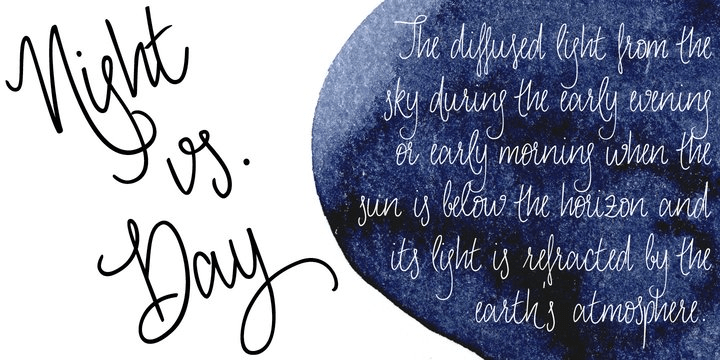 Night
vs.
Day
The diffused light from the
sky during the early evening
or early morning when the
sun is below the horizon and
its light is refracted by the
earth's atmosphere.